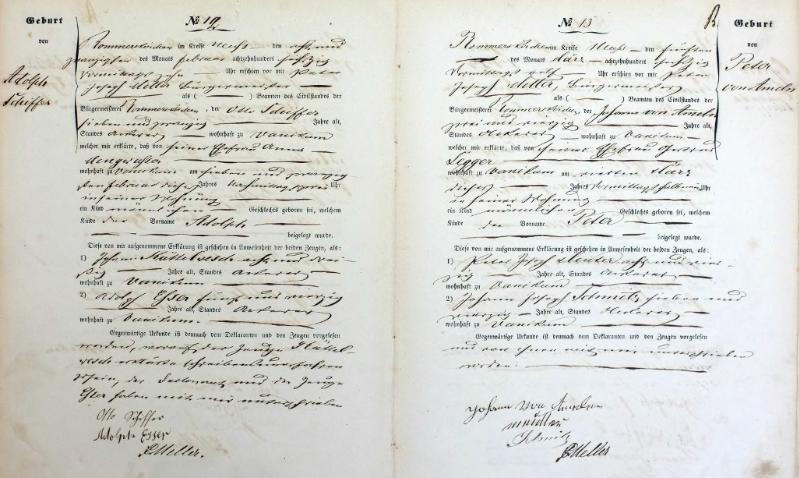 Geburt
von
Adolph
Scheffer
№ 12
Rommerskirchen im Kreise Neuss den acht und
zwanzigsten des Monats Februar achtzehnhundert sechszig
Vormittags Uhr erschien vor mir Peter
Joseph Meller Bürgermeister
als ( ) Beamten des Civilstandes der
Bürgermeisterei Rommerskirchen, der Otto Scheffer
sieben und zwanzig Jahre alt,
Standes Ackerer wohnhaft zu Vanikum
welcher mir erklärte, daß von seiner Ehefrau Anna
wohnhaft zu Vanikum am sieben und zwanzig
sten Februar dieses Jahres Nachmittags zwei Uhr
in seiner Wohnung
ein Kind männlichen Geschlechts geboren sei, welchem
Kinde der Vorname Adolph
beigelegt wurde.
Diese von mir aufgenommene Erklärung ist geschehen in Anwesenheit der beiden Zeugen, als:
1) Johann acht und drei-
ßig Jahre alt, Standes Ackerer
wohnhaft zu Vanikum
2) Adolph Esser fünf und vierzig
Jahre alt, Standes Ackerer
wohnhaft zu Vanikum.
Gegenwärtige Urkunde ist demnach dem Declaranten und den Zeugen vorgelesen
worden, worauf der Zeuge
erklärte Schreibens unerfahren
zu sein, der Declarant und der Zeuge
Esser haben mit mir unterschrieben
Otto Scheffer
Adolph Esser
PMeller.
№ 13
B.
Geburt
von
Peter
von Ameln
Rommerskirchen im Kreise Neuss den fünften
des Monats März achtzehnhundert sechszig
Vormittags elf Uhr erschien vor mir Peter
Joseph Meller, Bürgermeister
als ( ) Beamten des Civilstandes der
Bürgermeisterei Rommerskirchen, der Johann von Ameln
zwei und vierzig Jahre alt,
Standes Ackerer wohnhaft zu Vanikum
welcher mir erklärte, daß von seiner Ehefrau Gertrud
wohnhaft zu Vanikum am vierten März
dieses Jahres Vormittags Uhr
in seiner Wohnung
ein Kind männlichen Geschlechts geboren sei, welchem
Kinde der Vorname Peter
beigelegt wurde.
Diese von mir aufgenommene Erklärung ist geschehen in Anwesenheit der beiden Zeugen, als:
1) Peter Joseph acht und vier
zig Jahre alt, Standes Ackerer
wohnhaft zu Vanikum
2) Johann Joseph Schmitz sieben und
vierzig Jahre alt, Standes Ackerer
wohnhaft zu Vanikum
Gegenwärtige Urkunde ist demnach dem Declaranten und den Zeugen vorgelesen
und von ihnen mit mir unterschrieben
worden.
Johann von Ameln
Schmitz
PMeller